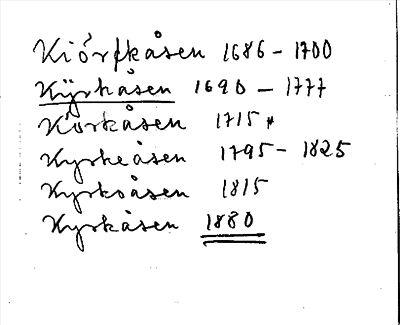 Kiörfkåsen 1686 - 1700
Kÿrkåsen 1690 - 1777
Körkåsen 1715 *
Kyrkeåsen 1795 - 1825
Kyrkoåsen 1815
Kyrkåsen 1880